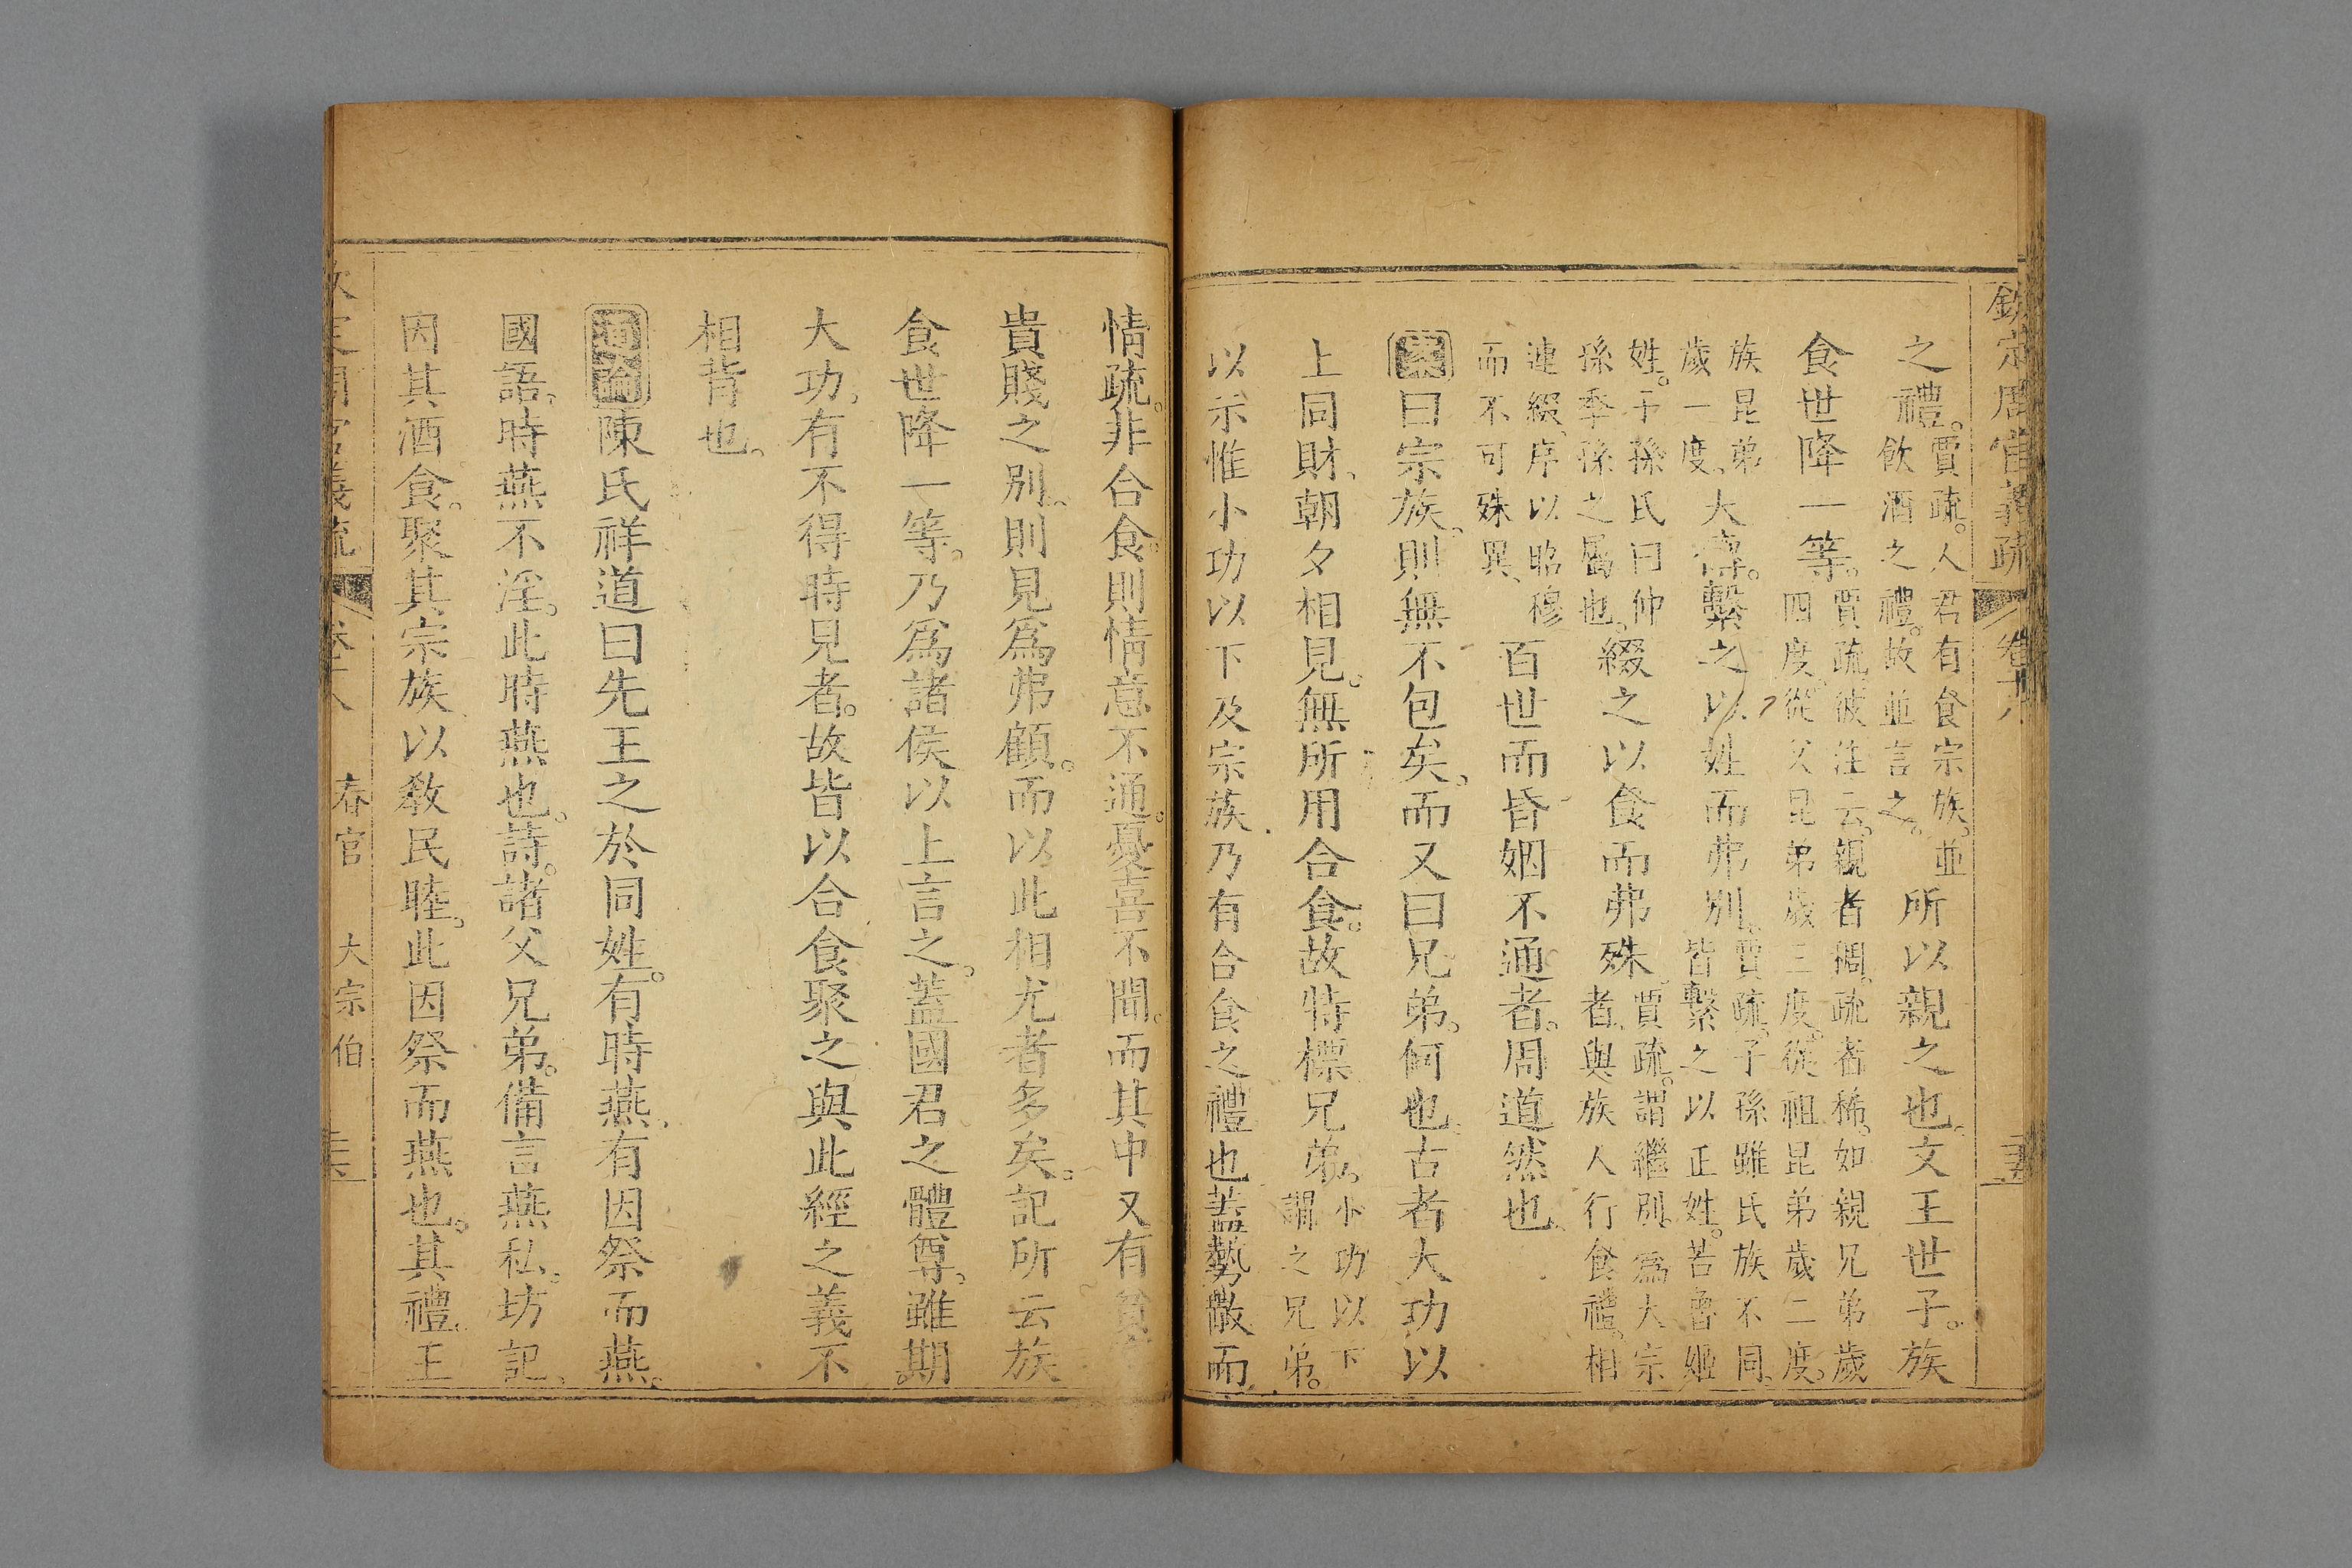 欽定周官義疏 卷十八
之禮。賈疏。人君有食宗族。並
飲酒之禮。故並言之。所以親之也。文王世子。族
食世降一等。賈疏。彼注云。親者稠。疏者稀。如親兄弟歲
四度。從父昆弟歲三度。從祖昆弟歲二度。
族昆弟
歲一度。大傳。繫之以姓而弗別。賈疏。子孫雖氏族不同。
皆繫之以正姓。若魯姬
姓。子孫氏曰仲
孫季孫之屬也。綴之以食而弗殊。賈疏。謂繼別。爲大宗
者。與族人行食禮。相
連綴。序以昭穆
而不可殊異。百世而昏姻不通者。周道然也。
曰宗族。則無不包矣。而又曰兄弟。何也。古者大功以
上同財。朝夕相見。無所用合食。故特標兄弟。小功以下
謂之兄弟。
以示惟小功以下及宗族乃有合食之禮也蓋勢散而
情疏。非合食。則情意不通。憂喜不聞。而其中又有
貴賤之別。則見爲弗顧。而以此相尤者多矣。記所云族
食世降一等。乃爲諸侯以上言之。蓋國君之體尊。雖期
大功。有不得時見者。故皆以合食聚之與此經之義不
相背也。
通論陳氏祥道曰先王之於同姓。有時燕。有因祭而燕。
國語。時燕不淫。此時燕也。詩。諸父兄弟。備言燕私。坊記。
因其酒食。聚其宗族以敎民睦。此因祭而燕也。其禮。王
周官義疏 春官 大宗伯